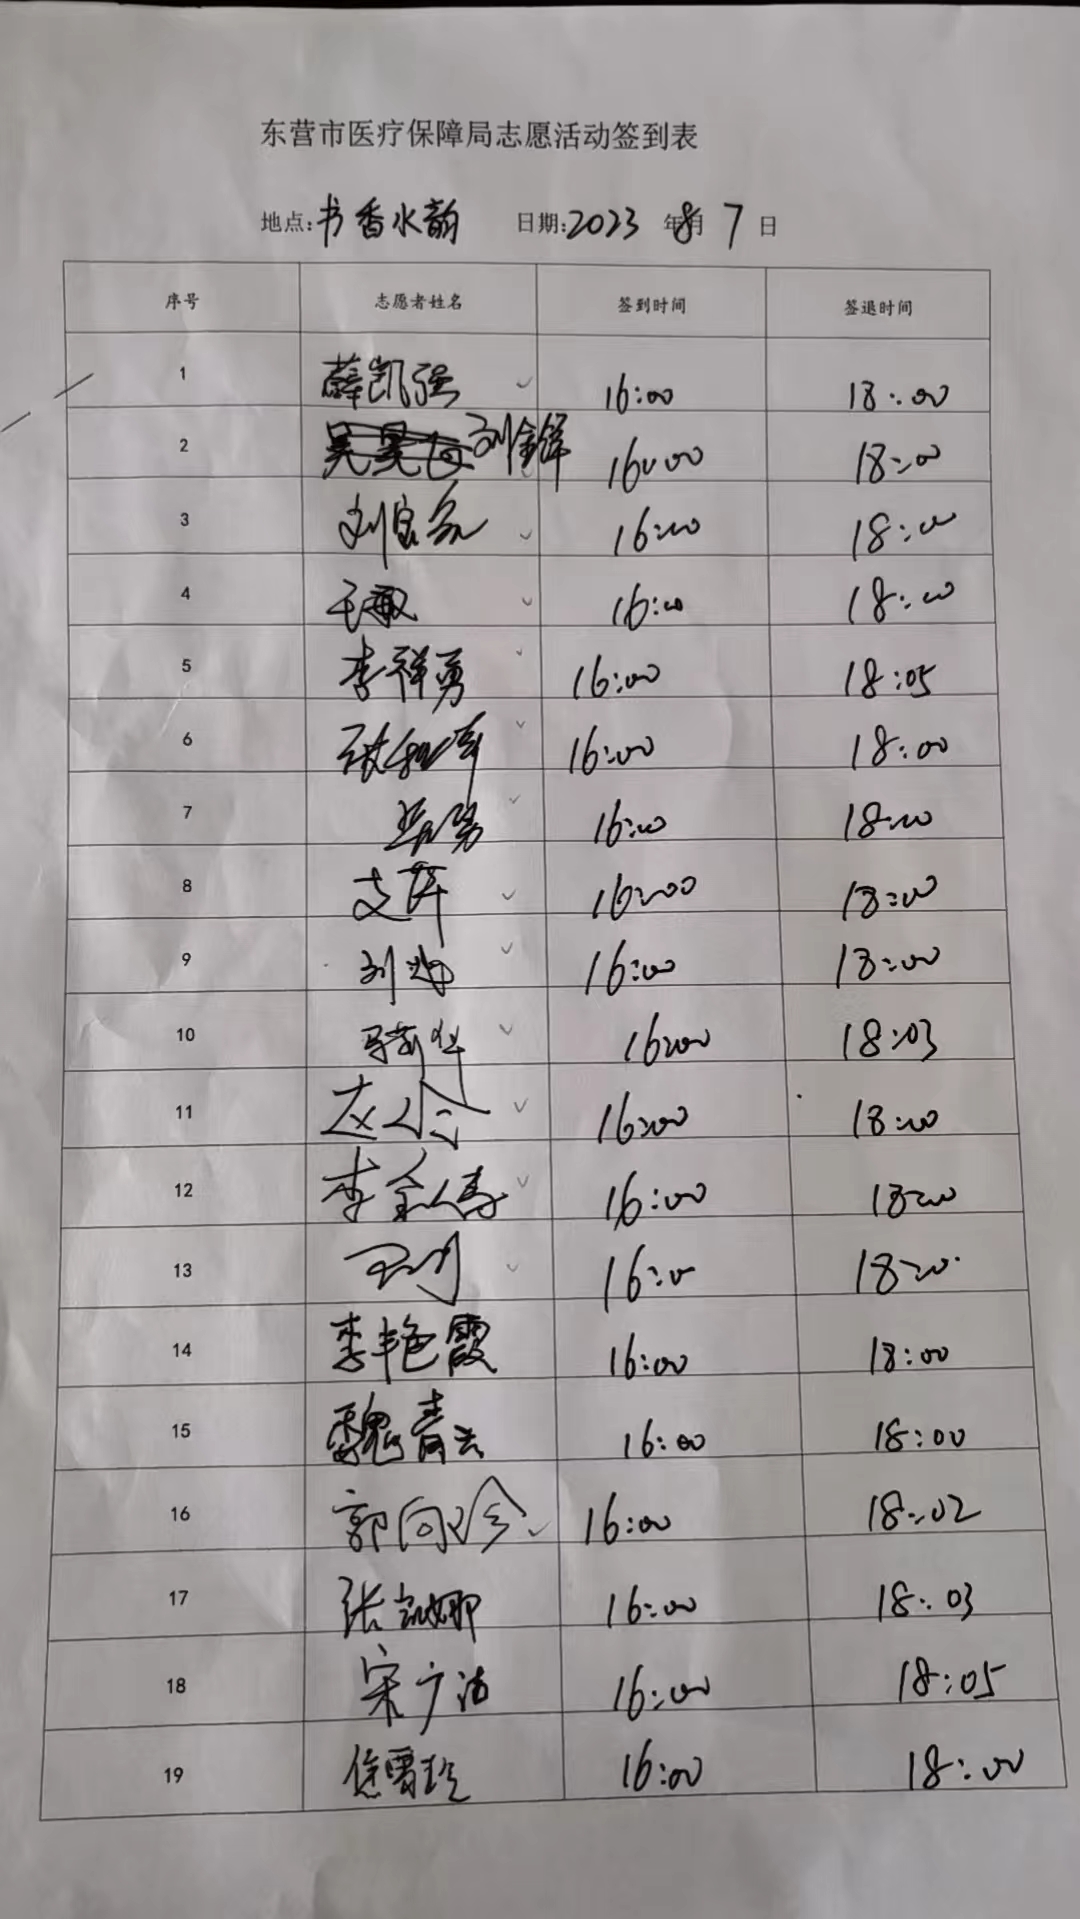 东营市医疗保障局志愿活动签到表
地点:书香水韵 日期:2023年8月7日
序号 志愿者姓名 签到时间 签退时间
1 薛凯强 16:00 18:00
2 刘金锋 16:00 18:00
3 刘 16:00 18:00
4 16:00 18:00
5 李祥勇 16:00 18:05
6 16:00 18:00
7 16:00 18:00
8 支萍 16:00 18:00
9 刘 16:00 18:00
10 16:00 18:03
11 16:00 18:00
12 李 16:00 18:00
13 16:00 18:00
14 李艳霞 16:00 18:00
15 魏青云 16:00 18:00
16 郭向玲 16:00 18:02
17 张凯娜 16:00 18:03
18 宋广洁 16:00 18:05
19 徐雪玲 16:00 18:00